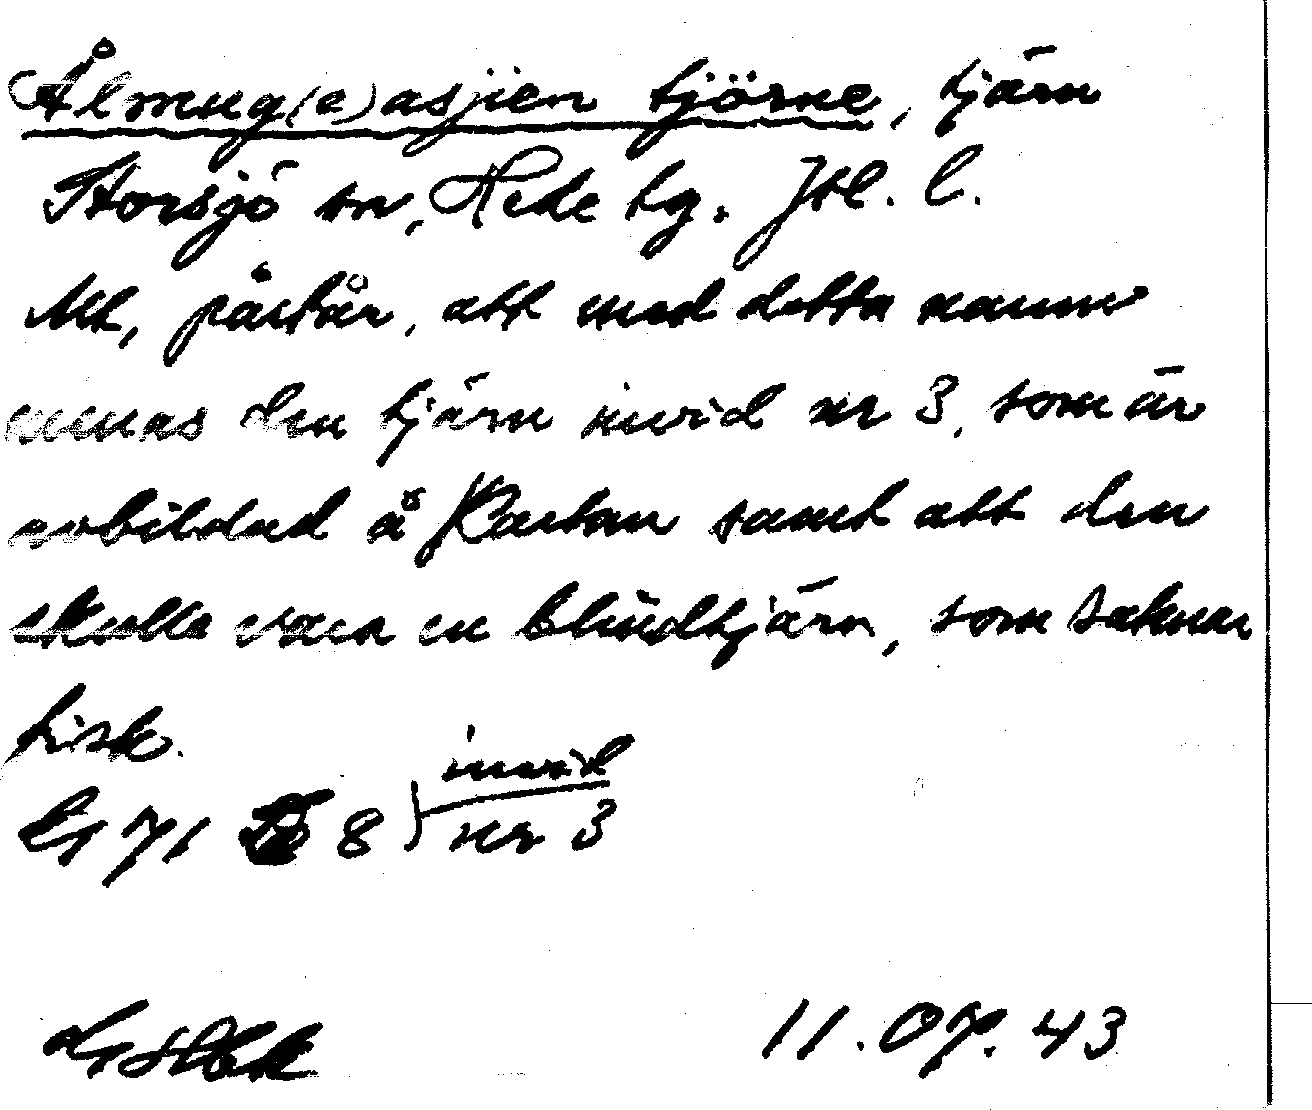 Ålmug(e)asjien tjörne, tjärn
Storsjö sn, Hede tg. Jtl. l.
Mt, påstår, att med detta namn
menas den tjärn invid nr 3, som är
avbildad å Kartan samt att den
skulle vara en blindtjärn, som saknar
fisk.
71 8 invid
nr 3
11.07.43